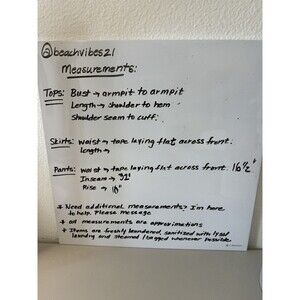 @beachvibes21
Measurements:
Tops: Bust → armpit to armpit
Length → shoulder to hem
Shoulder seam to cuff.
Skirts: waist → tape laying flat across front.
length →
Pants: waist → tape laying flat across front. 16 1/2"
Inseam → 31"
Rise → 10"
* Need additional measurements? I'm here
to help. Please message
* all measurements are approximations
* Items are freshly laundered, sanitized with lysol
laundry and steamed / bagged whenever possible